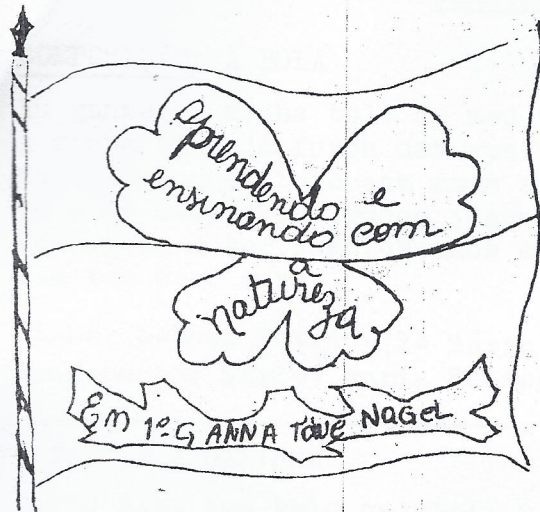 aprendendo e
ensinando com
a
natureza
EM 1º G ANNA TOWE NAGEL